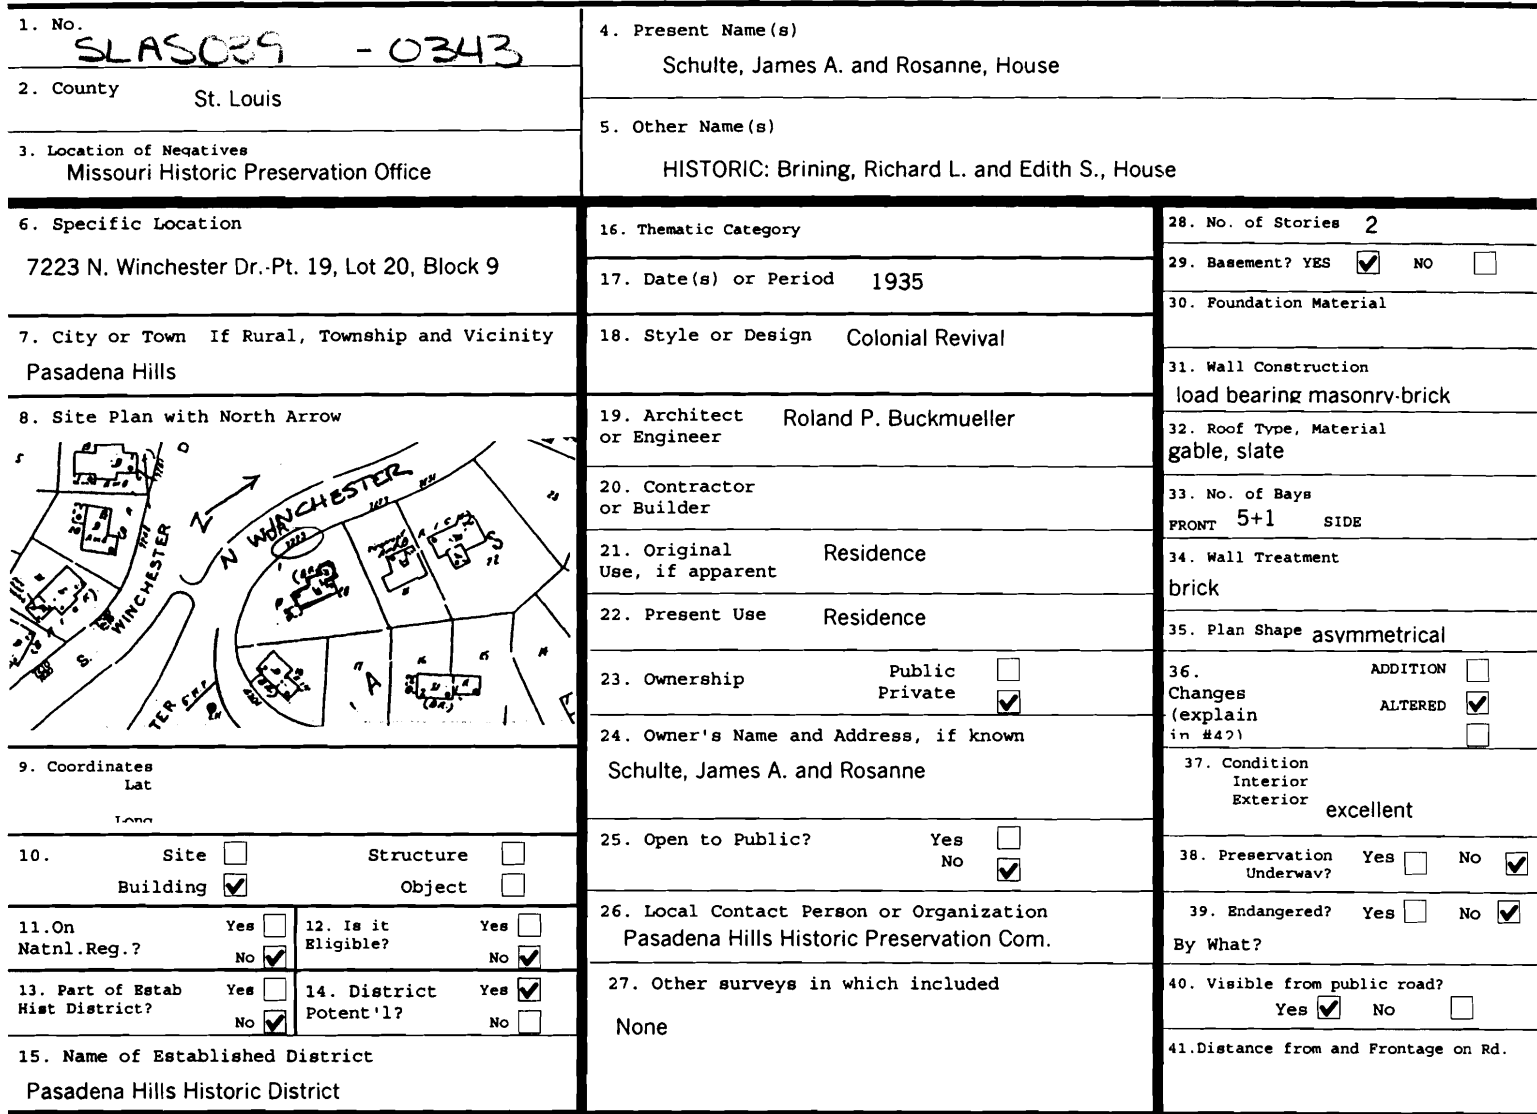 1. No.
SLAS039 - 0343
2. County
St. Louis
3. Location of Negatives
Missouri Historic Preservation Office
4. Present Name(s)
Schulte, James A. and Rosanne, House
5. Other Name(s)
HISTORIC: Brining, Richard L. and Edith S., House
6. Specific Location
7223 N. Winchester Dr.-Pt. 19, Lot 20, Block 9
7. City or Town If Rural, Township and Vicinity
Pasadena Hills
8. Site Plan with North Arrow
N
N WINCHESTER
7223
WINCHESTER
S.
TER
A
17
16
15
14
9. Coordinates
Lat
Long
10. Site Structure
Building Object
11.On Yes
Natnl.Reg.? No
12. Is it Yes
Eligible? No
13. Part of Estab Yes
Hist District? No
14. District Yes
Potent'l? No
15. Name of Established District
Pasadena Hills Historic District
16. Thematic Category
17. Date(s) or Period 1935
18. Style or Design Colonial Revival
19. Architect Roland P. Buckmueller
or Engineer
20. Contractor
or Builder
21. Original Residence
Use, if apparent
22. Present Use Residence
23. Ownership Public
Private
24. Owner's Name and Address, if known
Schulte, James A. and Rosanne
25. Open to Public? Yes
No
26. Local Contact Person or Organization
Pasadena Hills Historic Preservation Com.
27. Other surveys in which included
None
28. No. of Stories 2
29. Basement? YES NO
30. Foundation Material
31. Wall Construction
load bearing masonry-brick
32. Roof Type, Material
gable, slate
33. No. of Bays
FRONT 5+1 SIDE
34. Wall Treatment
brick
35. Plan Shape asymmetrical
36. ADDITION
Changes
(explain ALTERED
in #42)
37. Condition
Interior
Exterior excellent
38. Preservation Yes No
Underway?
39. Endangered? Yes No
By What?
40. Visible from public road?
Yes No
41.Distance from and Frontage on Rd.